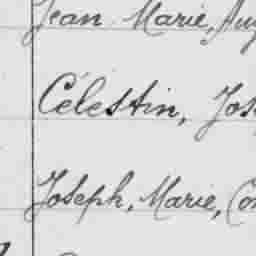 Jean Marie, Aug
Célestin, Jos
Joseph, Marie, Co